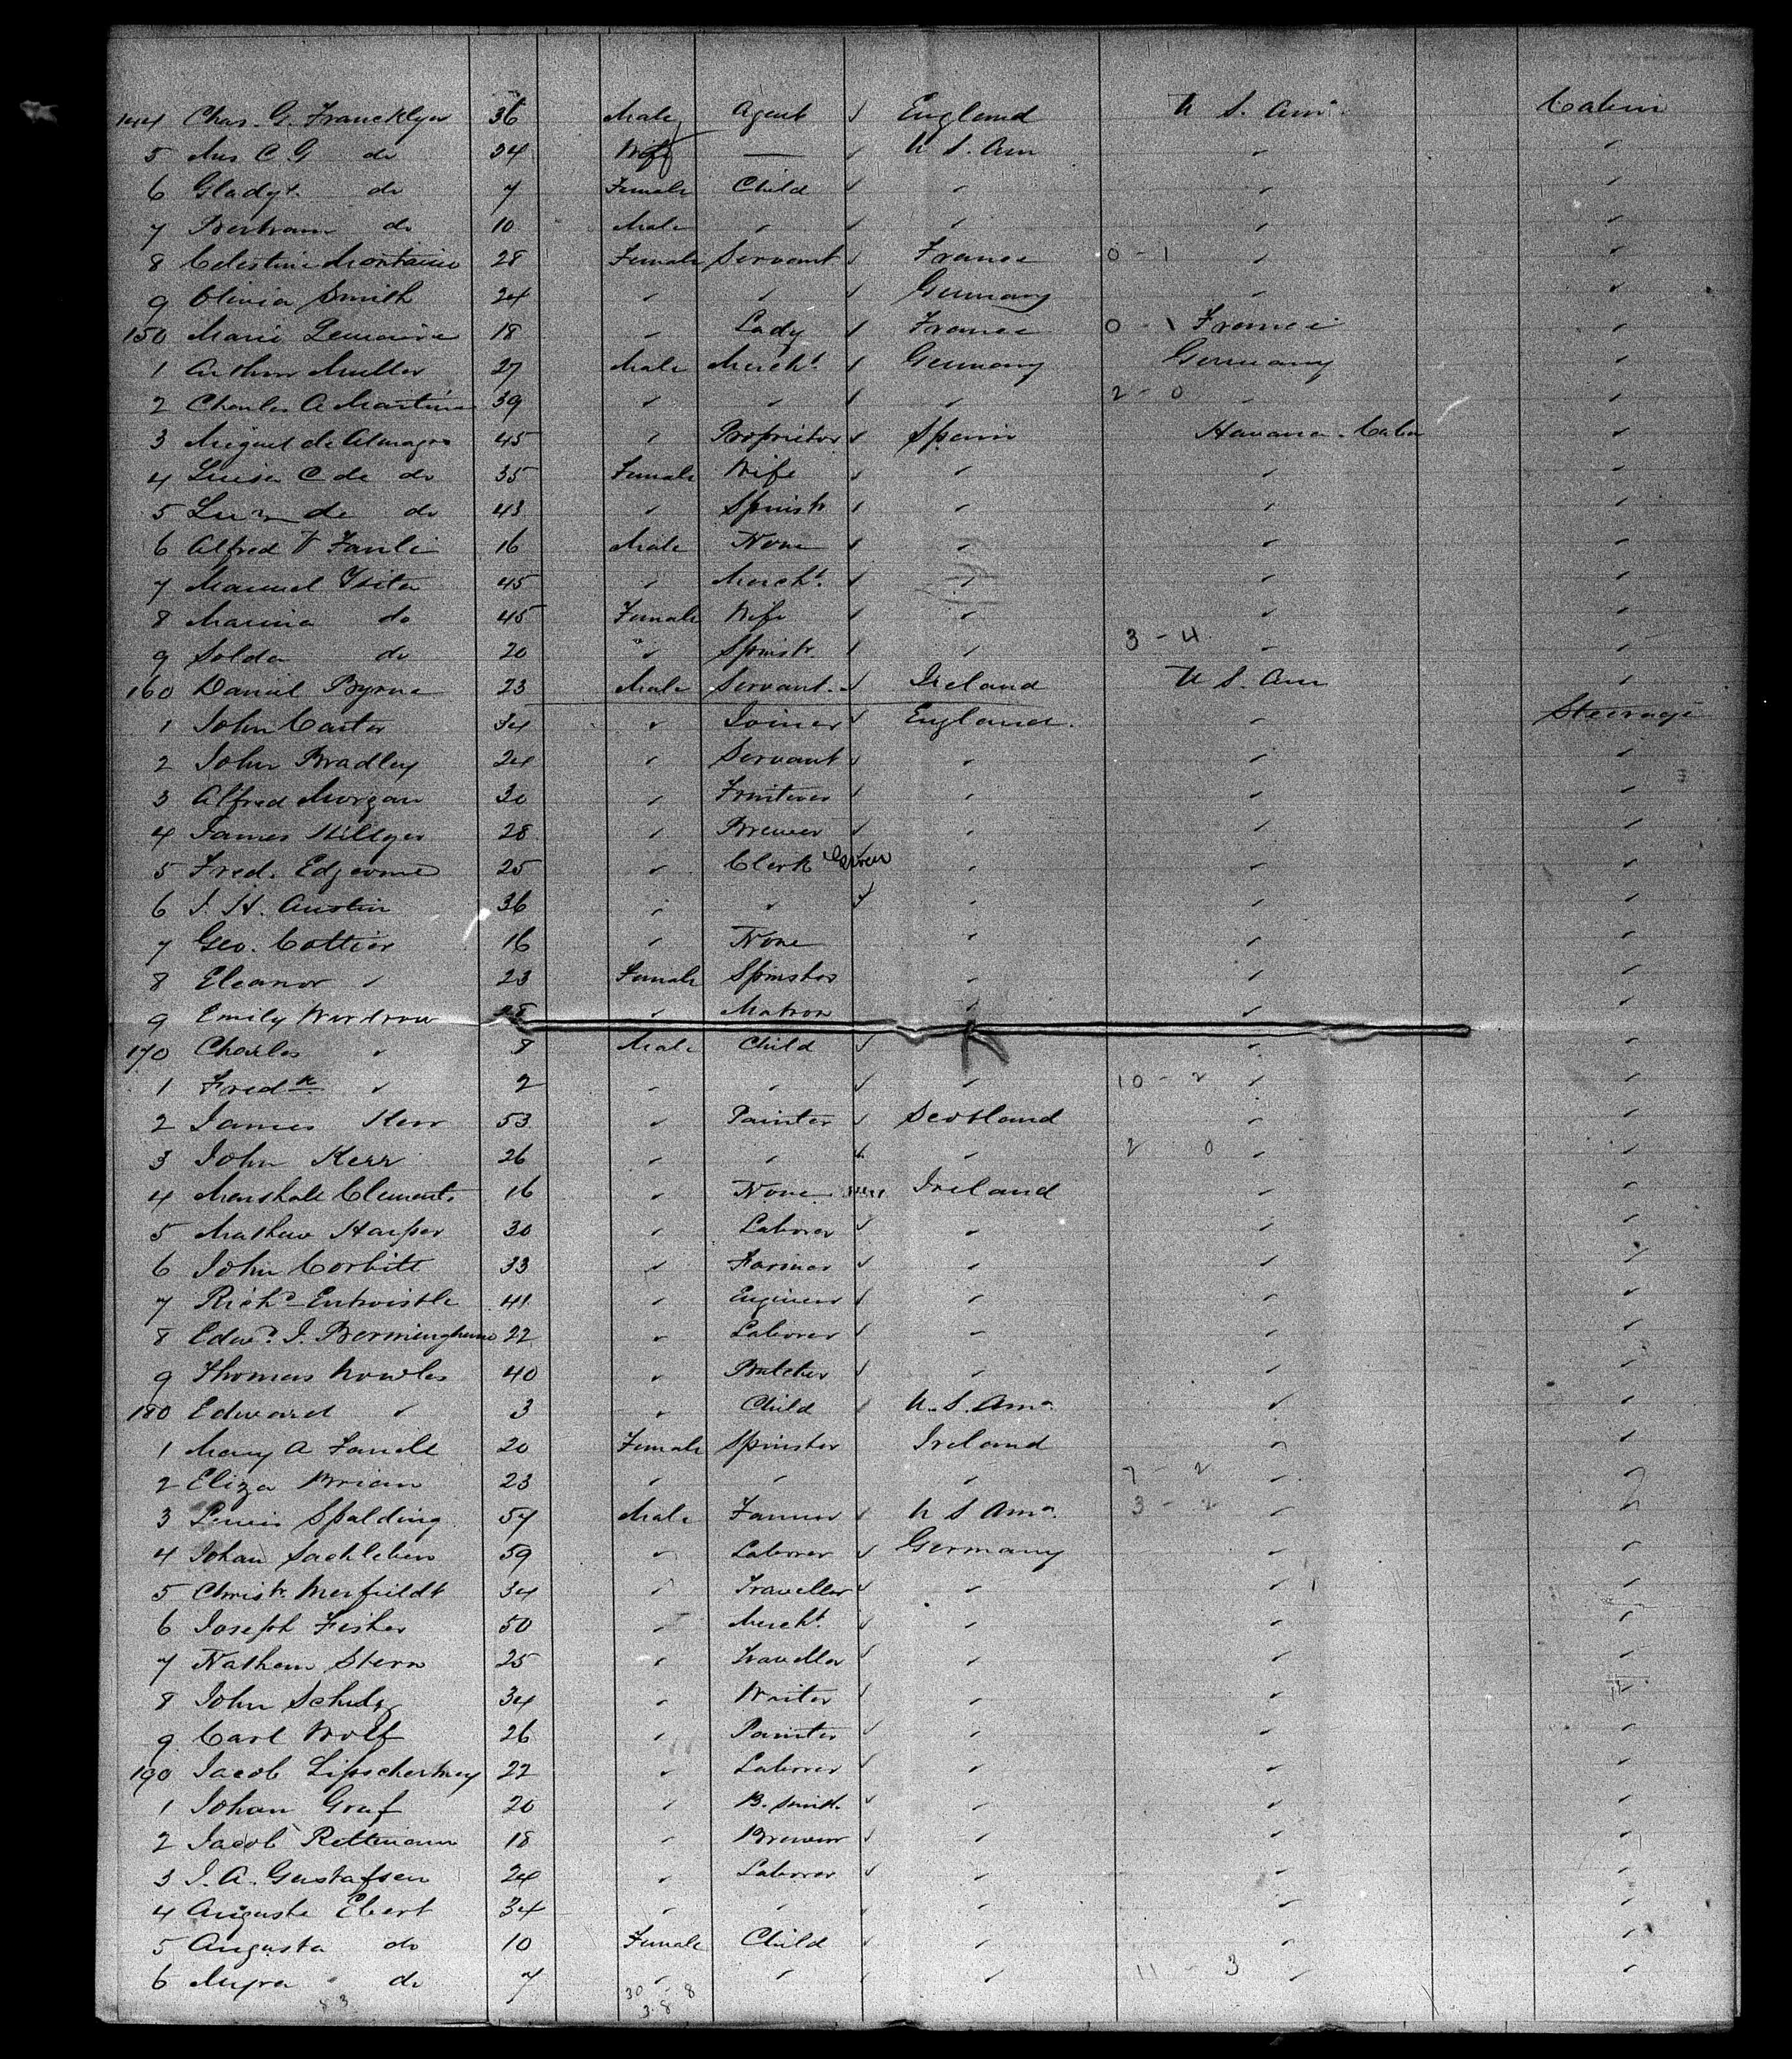 144 Chas. G. Francklyn 36 Male Agent ✓ England U S. Am. Cabin
5 Mrs C G do 34 Wife — ✓ U S. Am ✓ ✓
6 Gladys. do 7 Female Child ✓ ✓ ✓ ✓
7 Bertram do 10 Male ✓ ✓ ✓ ✓ ✓
8 Celestine Montaine 28 Female Servant ✓ France 0 - 1 ✓ ✓
9 Olivia Smith 24 ✓ ✓ ✓ Germany ✓ ✓
150 Marie Lemaire 18 ✓ Lady ✓ France 0 - 1 France ✓
1 Arthur Muller 27 Male Mercht. ✓ Germany Germany ✓
2 Charles A Martin 39 ✓ ✓ ✓ ✓ 2 - 0 ✓ ✓
3 Miguel de Almagro 45 ✓ Proprietor ✓ Spain Havana. Cuba ✓
4 Luisa C de do 35 Female Wife ✓ ✓ ✓ ✓
5 Luz de do 43 ✓ Spinstr ✓ ✓ ✓ ✓
6 Alfred 16 Male None ✓ ✓ ✓ ✓
7 Manuel 45 ✓ Mercht. ✓ ✓ ✓ ✓
8 Maria do 45 Female Wife ✓ ✓ ✓ ✓
9 do 20 ✓ Spinstr. ✓ ✓ 3 - 4 ✓ ✓
160 Daniel Byrne 23 Male Servant. ✓ Ireland U S. Am ✓
1 John Carter 34 ✓ Joiner ✓ England. ✓ Steerage
2 John Bradley 24 ✓ Servant ✓ ✓ ✓ ✓
3 Alfred Morgan 30 ✓ Fruiterer ✓ ✓ ✓ ✓
4 James 28 ✓ Brewer ✓ ✓ ✓ ✓
5 Fred. 25 ✓ Clerk ✓ ✓ ✓
6 J. H. Austin 36 ✓ ✓ ✓ ✓ ✓ ✓
7 Geo. Cottier 16 ✓ None ✓ ✓ ✓
8 Eleanor ✓ 23 Female Spinster ✓ ✓ ✓
9 Emily 28 ✓ Matron ✓ ✓
170 Charles ✓ 8 Male Child ✓ ✓ ✓
1 Fredk ✓ 2 ✓ ✓ ✓ ✓ 10 - 2 ✓ ✓
2 James Kerr 53 ✓ Painter ✓ Scotland ✓ ✓
3 John Kerr 26 ✓ ✓ ✓ ✓ 2 0 ✓ ✓
4 Marshall Clements 16 ✓ None Ireland ✓ ✓
5 Mathew Harper 30 ✓ Laborer ✓ ✓ ✓ ✓
6 John Corbitt 33 ✓ Farmer ✓ ✓ ✓ ✓
7 Richd Entwistle 41 ✓ Engineer ✓ ✓ ✓ ✓
8 Edwd. J. Bermingham 22 ✓ Laborer ✓ ✓ ✓ ✓
9 Thomas Nowles 40 ✓ Butcher ✓ ✓ ✓ ✓
180 Edward ✓ 3 ✓ Child ✓ U. S. Ama. ✓ ✓
1 Mary A 20 Female Spinster Ireland ✓ ✓
2 Eliza Brian 23 ✓ ✓ ✓ 7 - 2 ✓ ✓
3 Lewis Spalding 54 Male Farmer ✓ U S Ama. 3 - 2 ✓ ✓
4 Johan Sachleben 59 ✓ Laborer ✓ Germany ✓ ✓
5 Christr. Merfeildt 34 ✓ Traveller ✓ ✓ ✓ ✓
6 Joseph Fisher 50 ✓ Mercht. ✓ ✓ ✓ ✓
7 Nathan Stern 25 ✓ Traveller ✓ ✓ ✓ ✓
8 John Schulz 34 ✓ Waiter ✓ ✓ ✓ ✓
9 Carl Wolf 26 ✓ Painter ✓ ✓ ✓ ✓
190 Jacob 22 ✓ Laborer ✓ ✓ ✓ ✓
1 Johan Graf 20 ✓ B. Smith. ✓ ✓ ✓ ✓
2 Jacob Rettmann 18 ✓ Brewer ✓ ✓ ✓ ✓
3 J. A. Gustafsen 24 ✓ Laborer ✓ ✓ ✓ ✓
4 Auguste Ebert 34 ✓ ✓ ✓ ✓ ✓
5 Augusta do 10 Female Child ✓ ✓ ✓ ✓
6 Myra do 7 ✓ ✓ ✓ ✓ 11 - 3 ✓ ✓
83 30 - 8
3.8